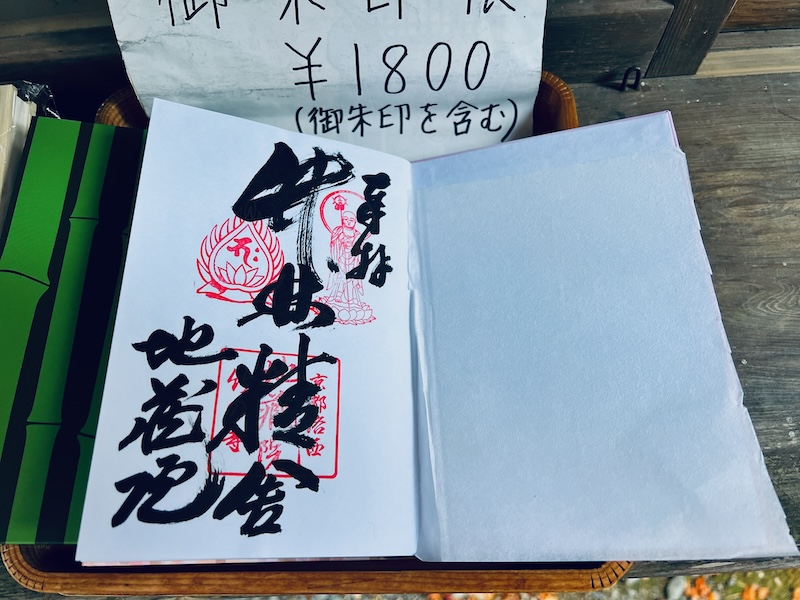 御朱印帳
¥1800
(御朱印を含む)
奉拝
竹林精舎
地蔵院
京都洛西